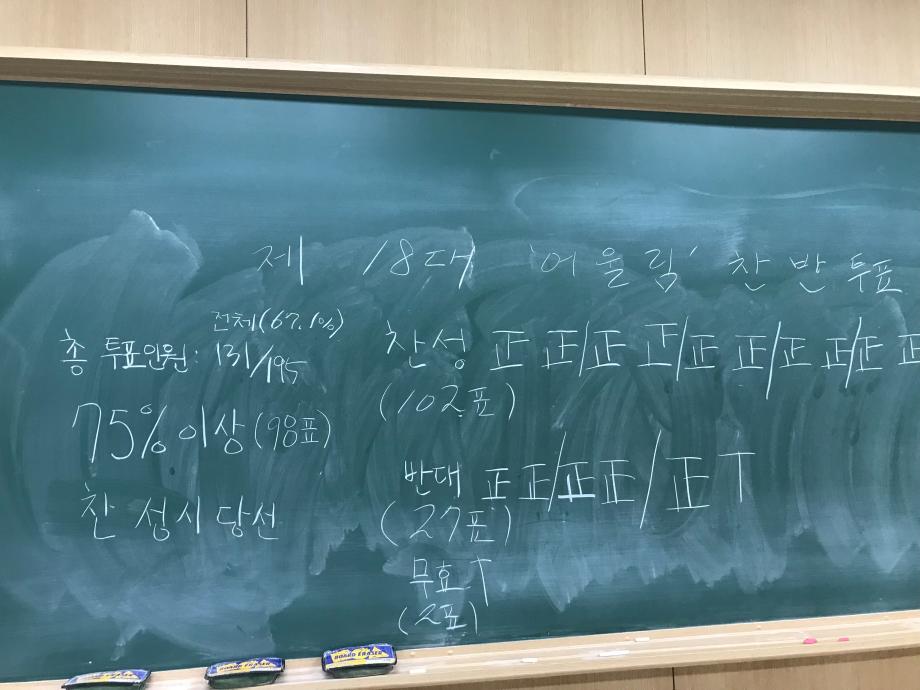 제 18대 '어울림' 찬반투표
전체(67.1%)
총 투표인원: 131/195
75% 이상(98표)
찬성시 당선
찬성 正 正/正 正/正 正/正 正/正 正
(102표)
반대 正 正/正 正/正 丅
(27표)
무효 丅
(2표)
BOARD ERASER
BOARD ERASER
BOARD ERASER